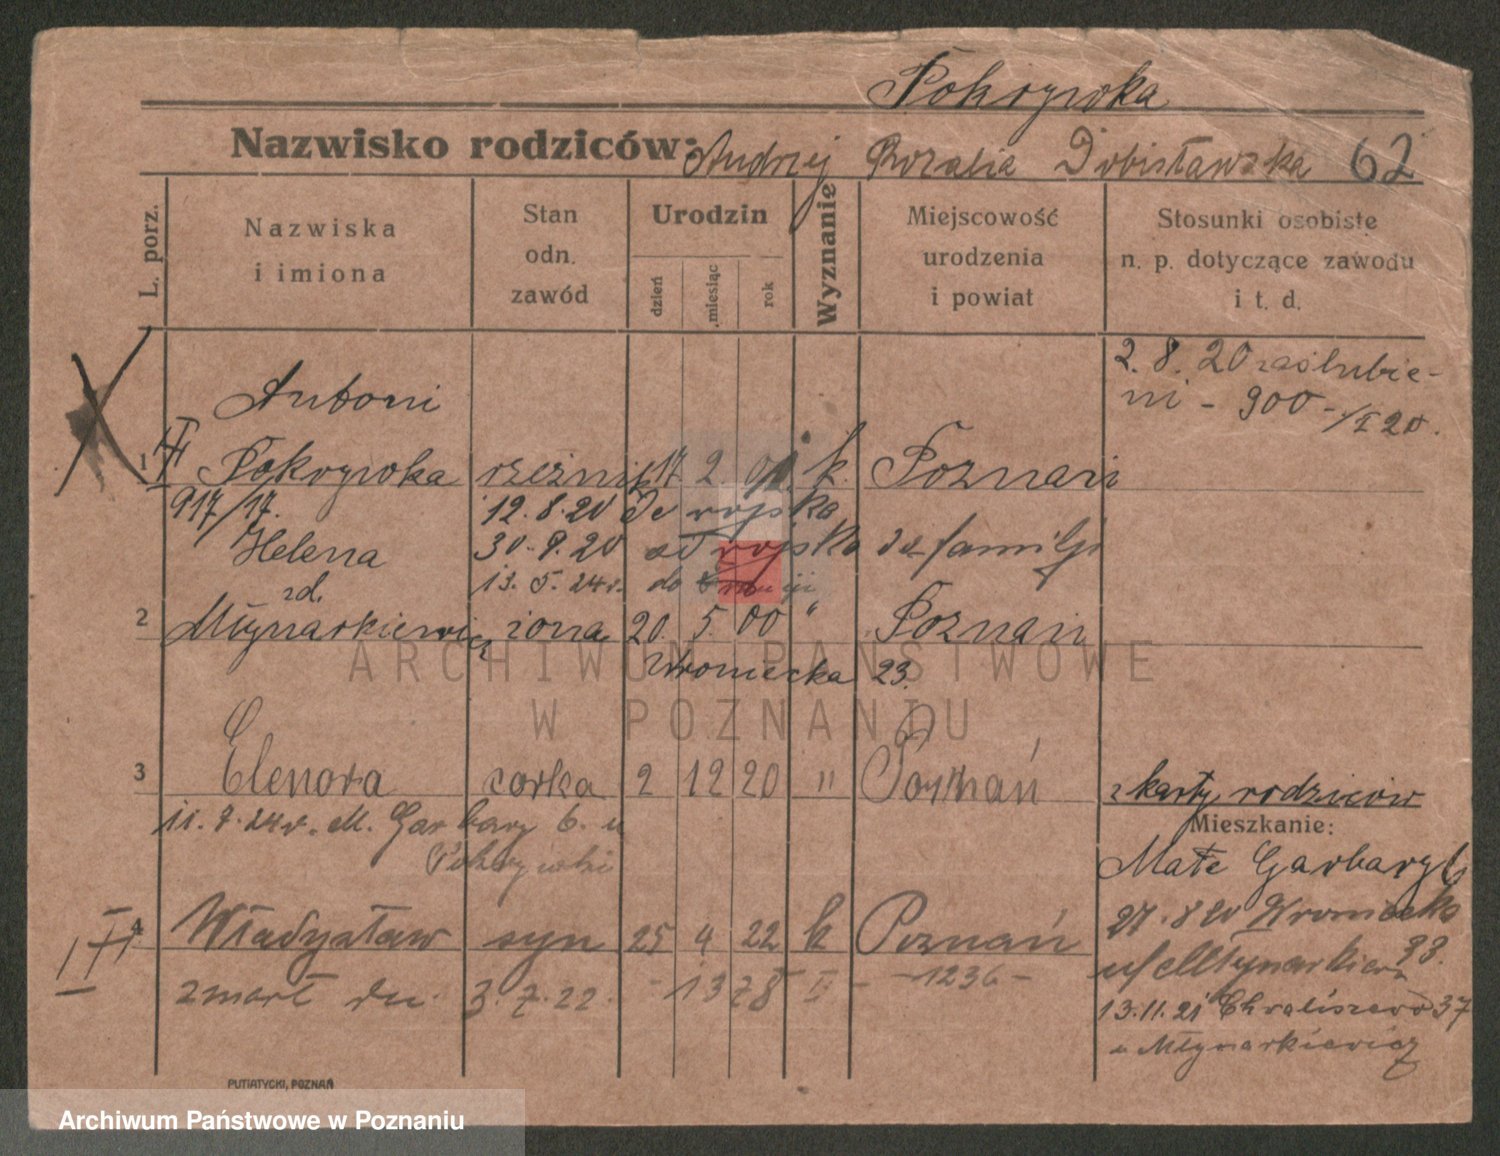 Pokrzywka
Nazwisko rodziców: Andrzej Rozalia Dobisławska 62
L. porz.
Nazwiska i imiona
Stan odn. zawód
Urodzin
dzień miesiąc rok
Wyznanie
Miejscowość urodzenia i powiat
Stosunki osobiste n. p. dotyczące zawodu i t. d.
2. 8. 20 zaślubie-
ni - 900 - /I 20.
Antoni
1 Pokrzywka rzeźnik 17. 2. k. Poznań
917/17. 12. 8. 20 Do wojska
Helena 30. 9. 20 od wojska do familji
zd. 13. 5. 24 r. do
2 Młynarkiewicz żona 20. 5. 00 " Poznań
Wroniecka 23.
3 Elenora corka 2 12 20 " Poznań
z karty rodziców
11. 7. 24 r. M. Garbary 6. u
Mieszkanie:
Małe Garbary 6
4 Władysław syn 25 4 22 k Poznań
27. 8 20 Wroniecka
23.
u/ Młynarkiewicz
zmarł dn. 3. 7. 22. - 1378 II - -1236-
13. 11. 21 Chwaliszewo 37
u Młynarkiewicz
PUTIATYCKI, POZNAŃ
ARCHIWUM PAŃSTWOWE
W POZNANIU
Archiwum Państwowe w Poznaniu